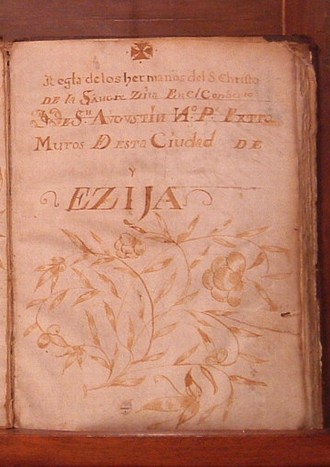 Regla de los hermanos del S. Christo
DE la Sangre En el Con
DE S.n AGVSTIN N.o P.e EXTRA
MUROS DESTA CIUDAD DE
Y
EZIJA